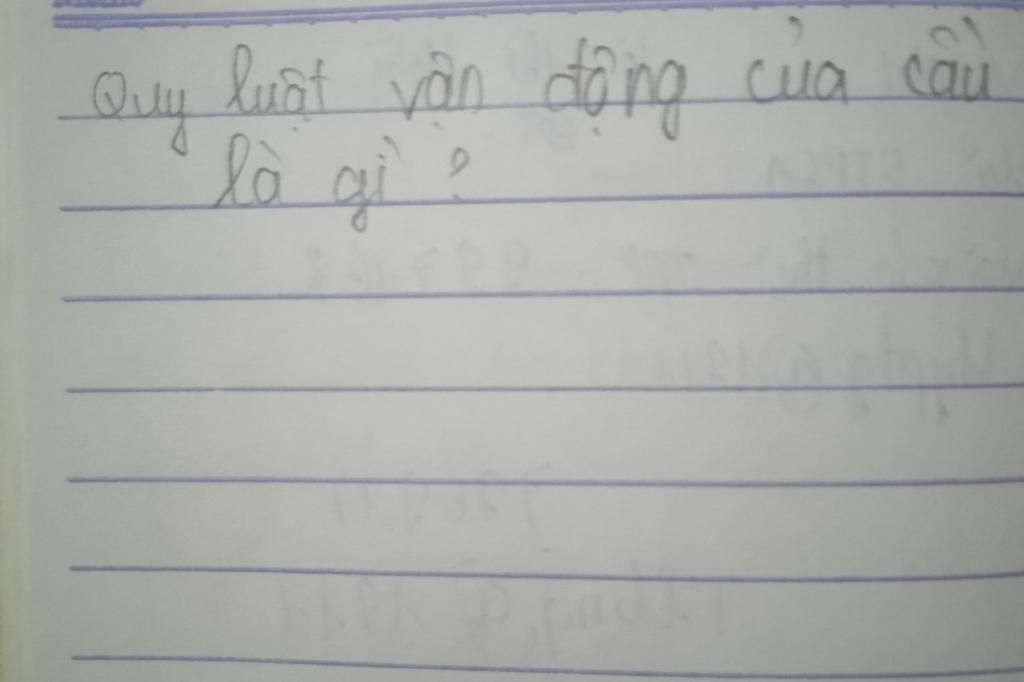 Quy luật vận động của cầu
là gì ?